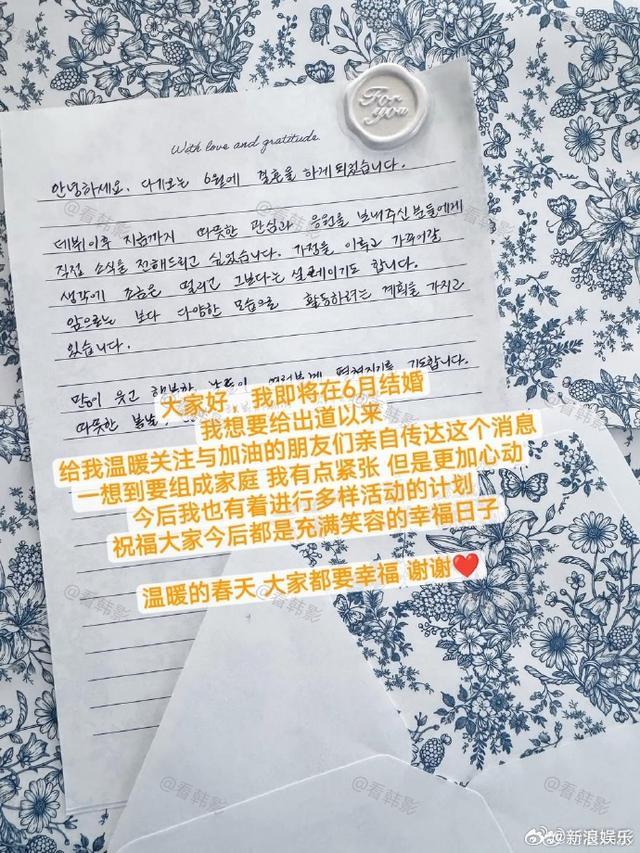 For
you
With love and gratitude.
안녕하세요. 다가오는 6월에 결혼을 하게 되었습니다.
데뷔이후 지금까지 따뜻한 관심과 응원을 보내주신 분들에게
직접 소식을 전해드리고 싶었습니다. 가정을 이루고 가꾸어갈
생각에 조금은 떨리고 그보다는 설레이기도 합니다.
앞으로는 보다 다양한 모습으로 활동하려는 계획을 가지고
있습니다.
많이 웃고 행복한 날들이 여러분께 펼쳐지기를 기도합니다.
따뜻한 봄날
大家好，我即将在6月结婚
我想要给出道以来
给我温暖关注与加油的朋友们亲自传达这个消息
一想到要组成家庭 我有点紧张 但是更加心动
今后我也有着进行多样活动的计划
祝福大家今后都是充满笑容的幸福日子
温暖的春天 大家都要幸福 谢谢❤️
@看韩影
@看韩影
@看韩影
@看韩影
@看韩影
@看韩影
@看韩影
@看韩影
@新浪娱乐